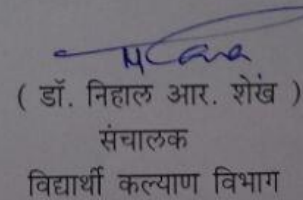 ( डॉ. निहाल आर. शेख )
संचालक
विद्यार्थी कल्याण विभाग